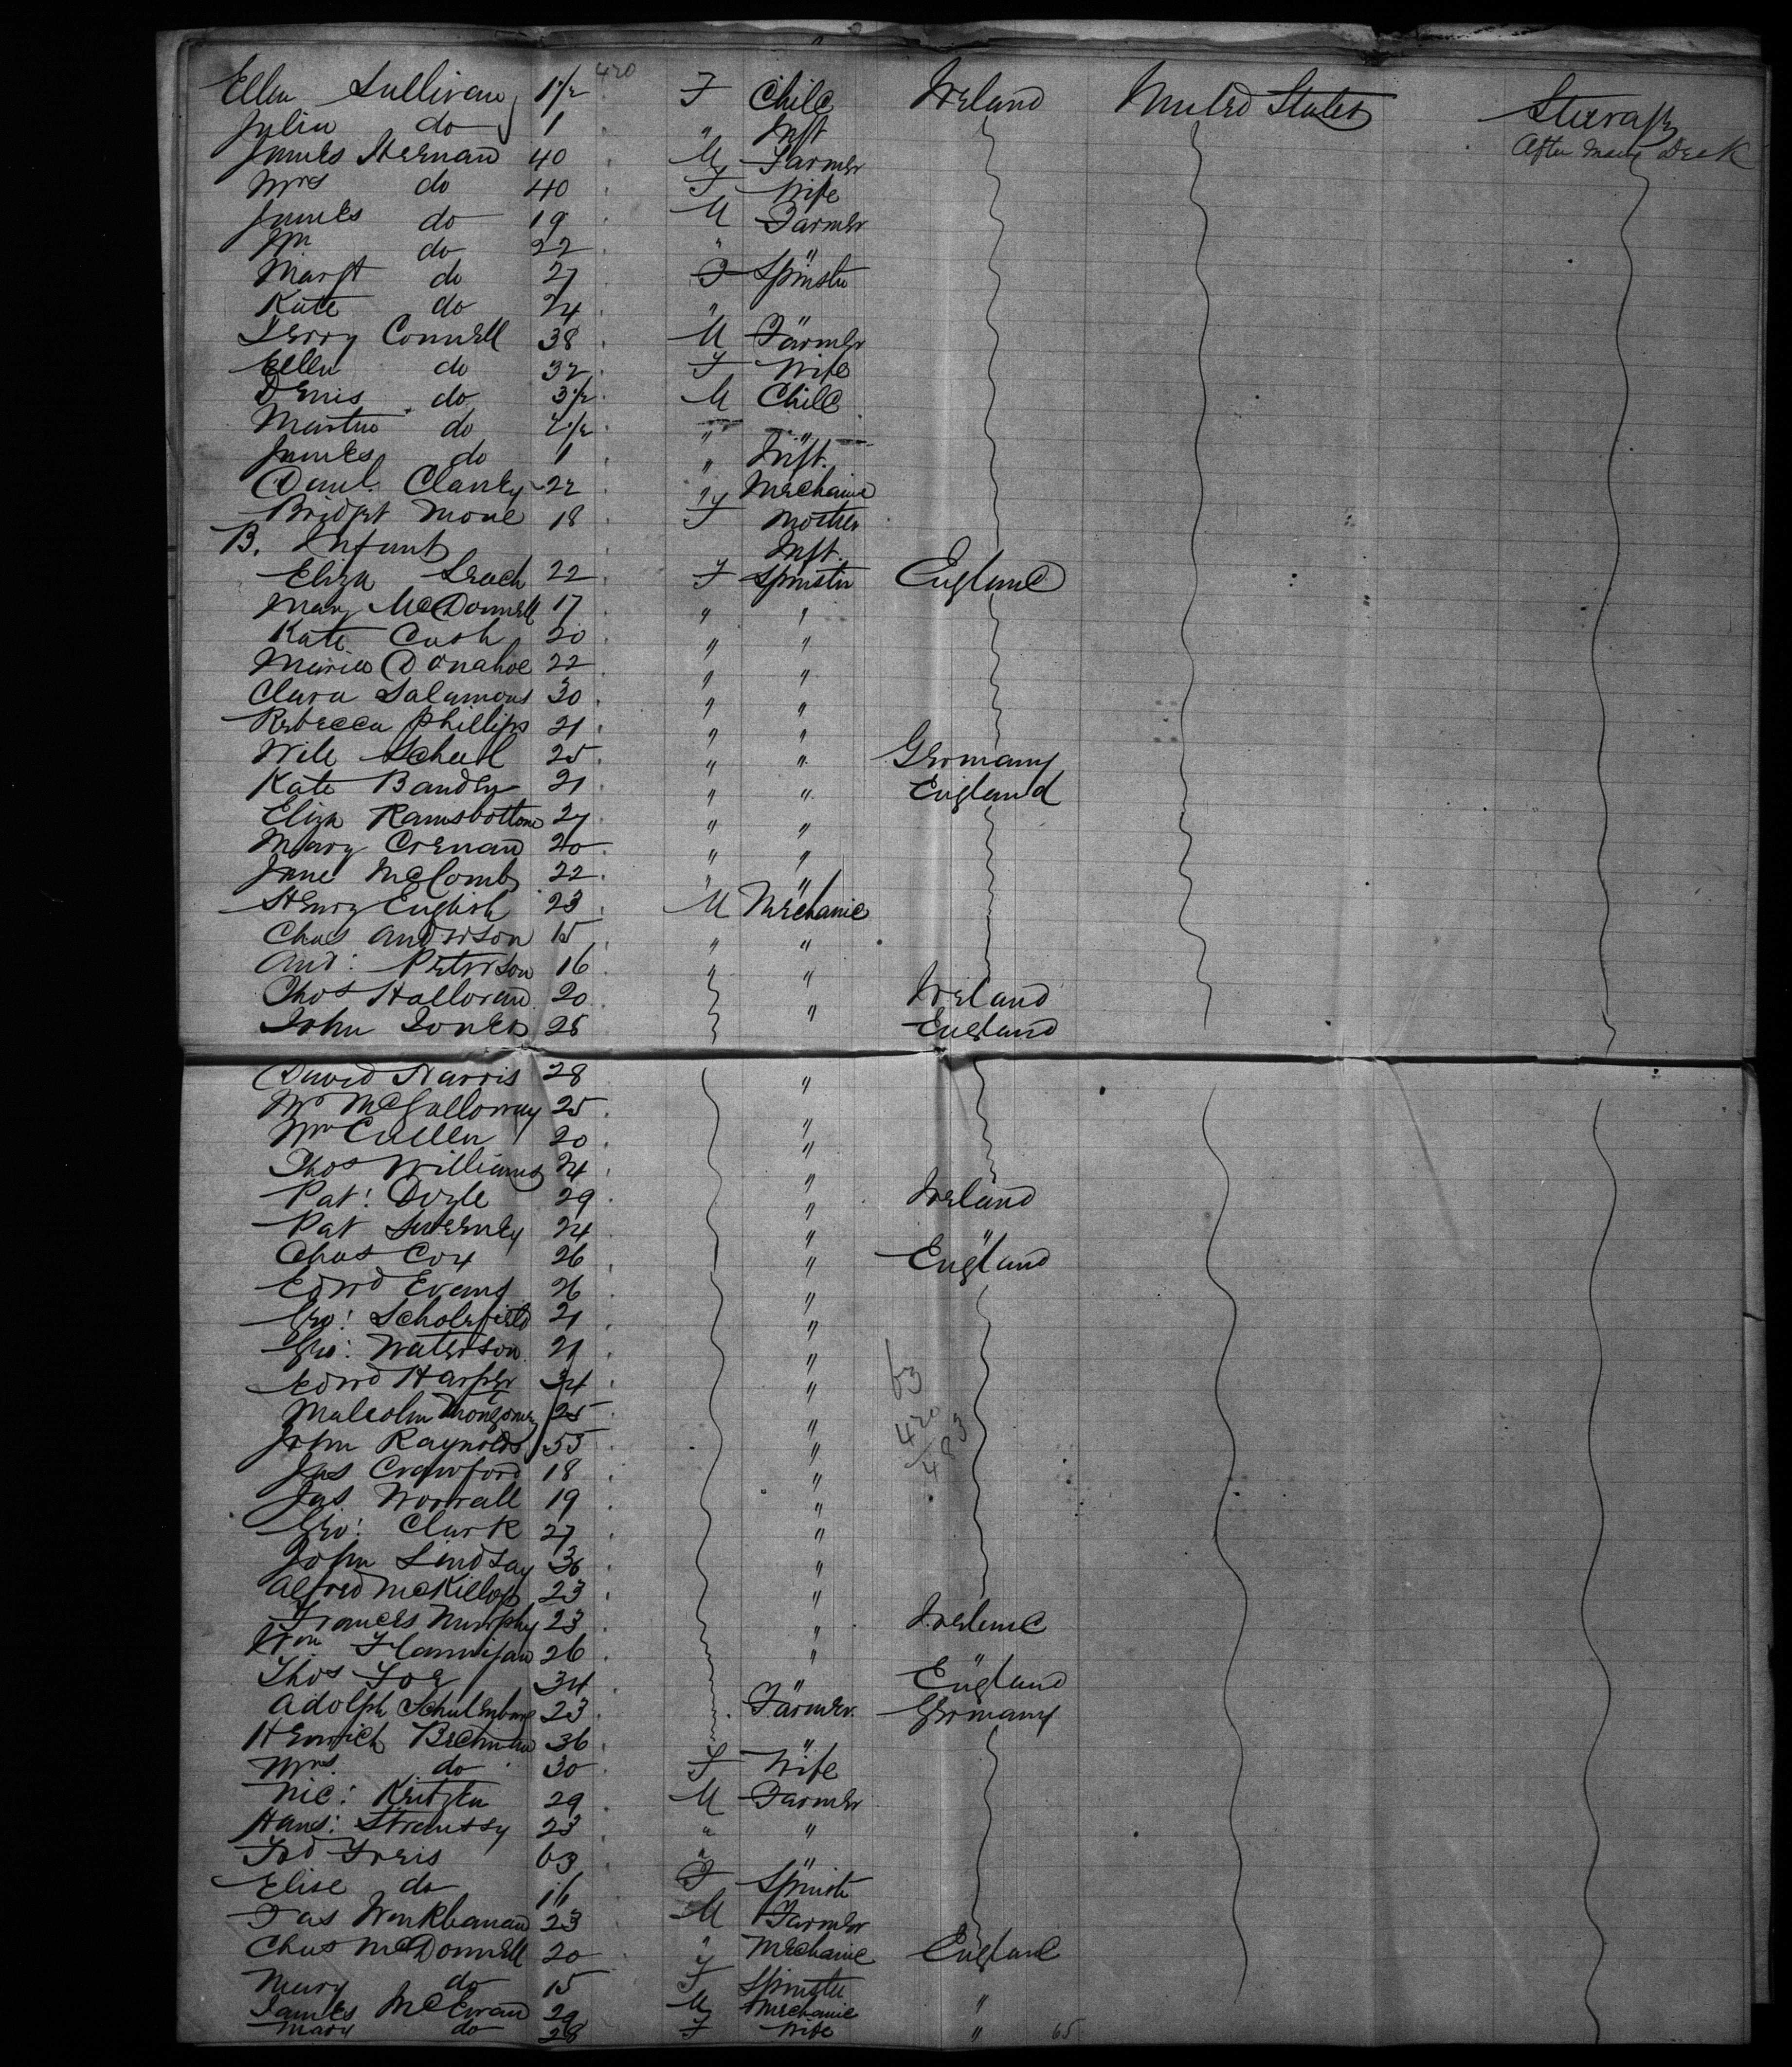 Ellen Sullivan 1 1/2 420 F Child Ireland United States Steerage
Julia do 1 " Inft After Main Deck
James Heenan 40 M Farmer
Mrs do 40 F Wife
James do 19 M Farmer
Wm do 22 " "
Margt do 27 F Spinster
Kate do 24 " "
Jerry Connell 38 M Farmer
Ellen do 32 F Wife
Denis do 3 1/2 M Child
Martin do 2 1/2 " "
James do 1 " Inft.
Danl. Clancy 22 " Mechanic
Bridget Mone 18 F Mother
B. Infant Inft.
Eliza Leach 22 F Spinster England
Mary McDonnell 17 " "
Kate Cash 20 " "
Maria Donahoe 22 " "
Clara Salamons 30 " "
Rebecca Phillips 21 " "
Will Scheel 25 " " Germany
Kate Bandey 21 " " England
Eliza Ramsbottom 27 " "
Mary Crenan 20 " "
Jane McComb 22 " "
Henry English 23 M Mechanic
Chas Anderson 15 " "
And: Peterson 16 "
Thos Halloran 20 " Ireland
John Jones 28 England
David Harris 28 "
Wm McGalloway 25 "
Wm Cullen 20 "
Thos Williams 24 "
Pat: Doyle 29 " Ireland
Pat Sweeney 24 " "
Chas Cox 26 " England
Edwd Evans 26 "
Geo: Scholefield 21 "
Geo: Waterson 21 "
Edwd Harper 34 " 63
Malcolm Montgomery 25 " 420
John Raynolds 55 " 483
Jas Crawford 18 "
Jas Worrall 19 "
Geo: Clark 27 "
John Lindsay 36 "
Alfred McKillop 23 "
Frances Murphy 23 " Ireland
Wm Flannigan 26 " "
Thos Foe 34 England
Adolph Schulenburg 23 Farmer. Germany
Heinrich 36 "
Mrs. do 30 F Wife
Nic: 29 M Farmer
Hans: Straussy 23 " "
Fred Freis 63 " "
Elise do 16 F Spinster
23 M Farmer
Chas McDonnell 20 " Mechanic England
Mary do 15 F Spinster
James McEwan 29 M Mechanic "
Mary do 28 F Wife " 65